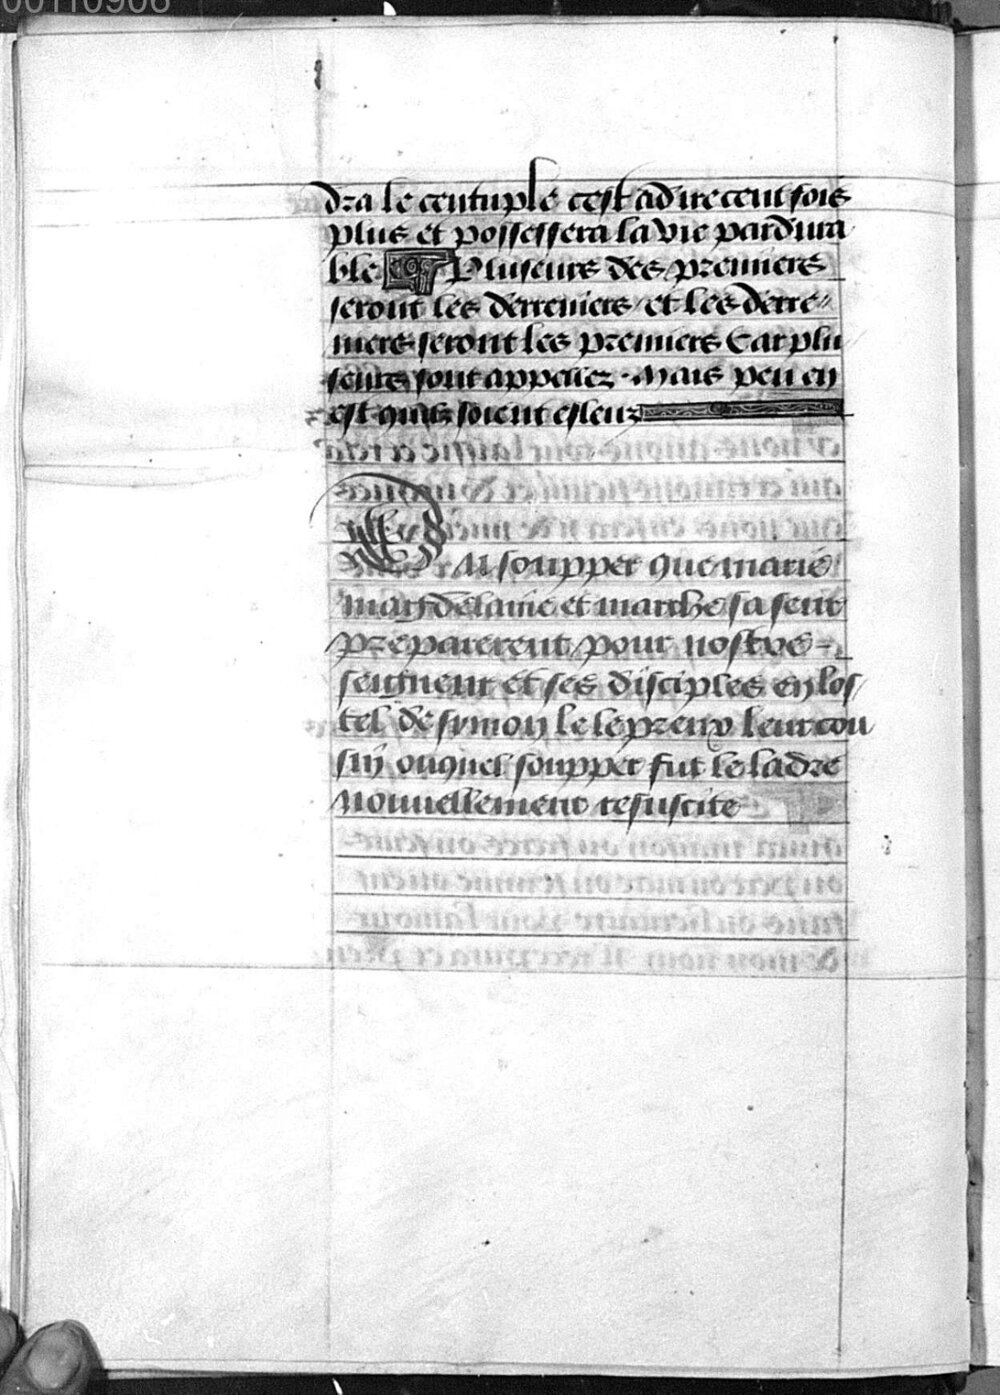 00110906
dra le centuple cest adire cent fois
plus et possessera la vie pardura
ble Pluseurs des premiers
seront les derreniers et les derre
niers seront les premiers Car plu
seurs sont appellez. Mais peu en
est quilz soient esleuz
Du soupper que marie
magdelaine et marthe sa seur
preparerent pour nostre
seigneur et ses disciples en los
tel de symon le lepreux leur cou
sin ouquel soupper fut le ladre
nouuellement resuscite